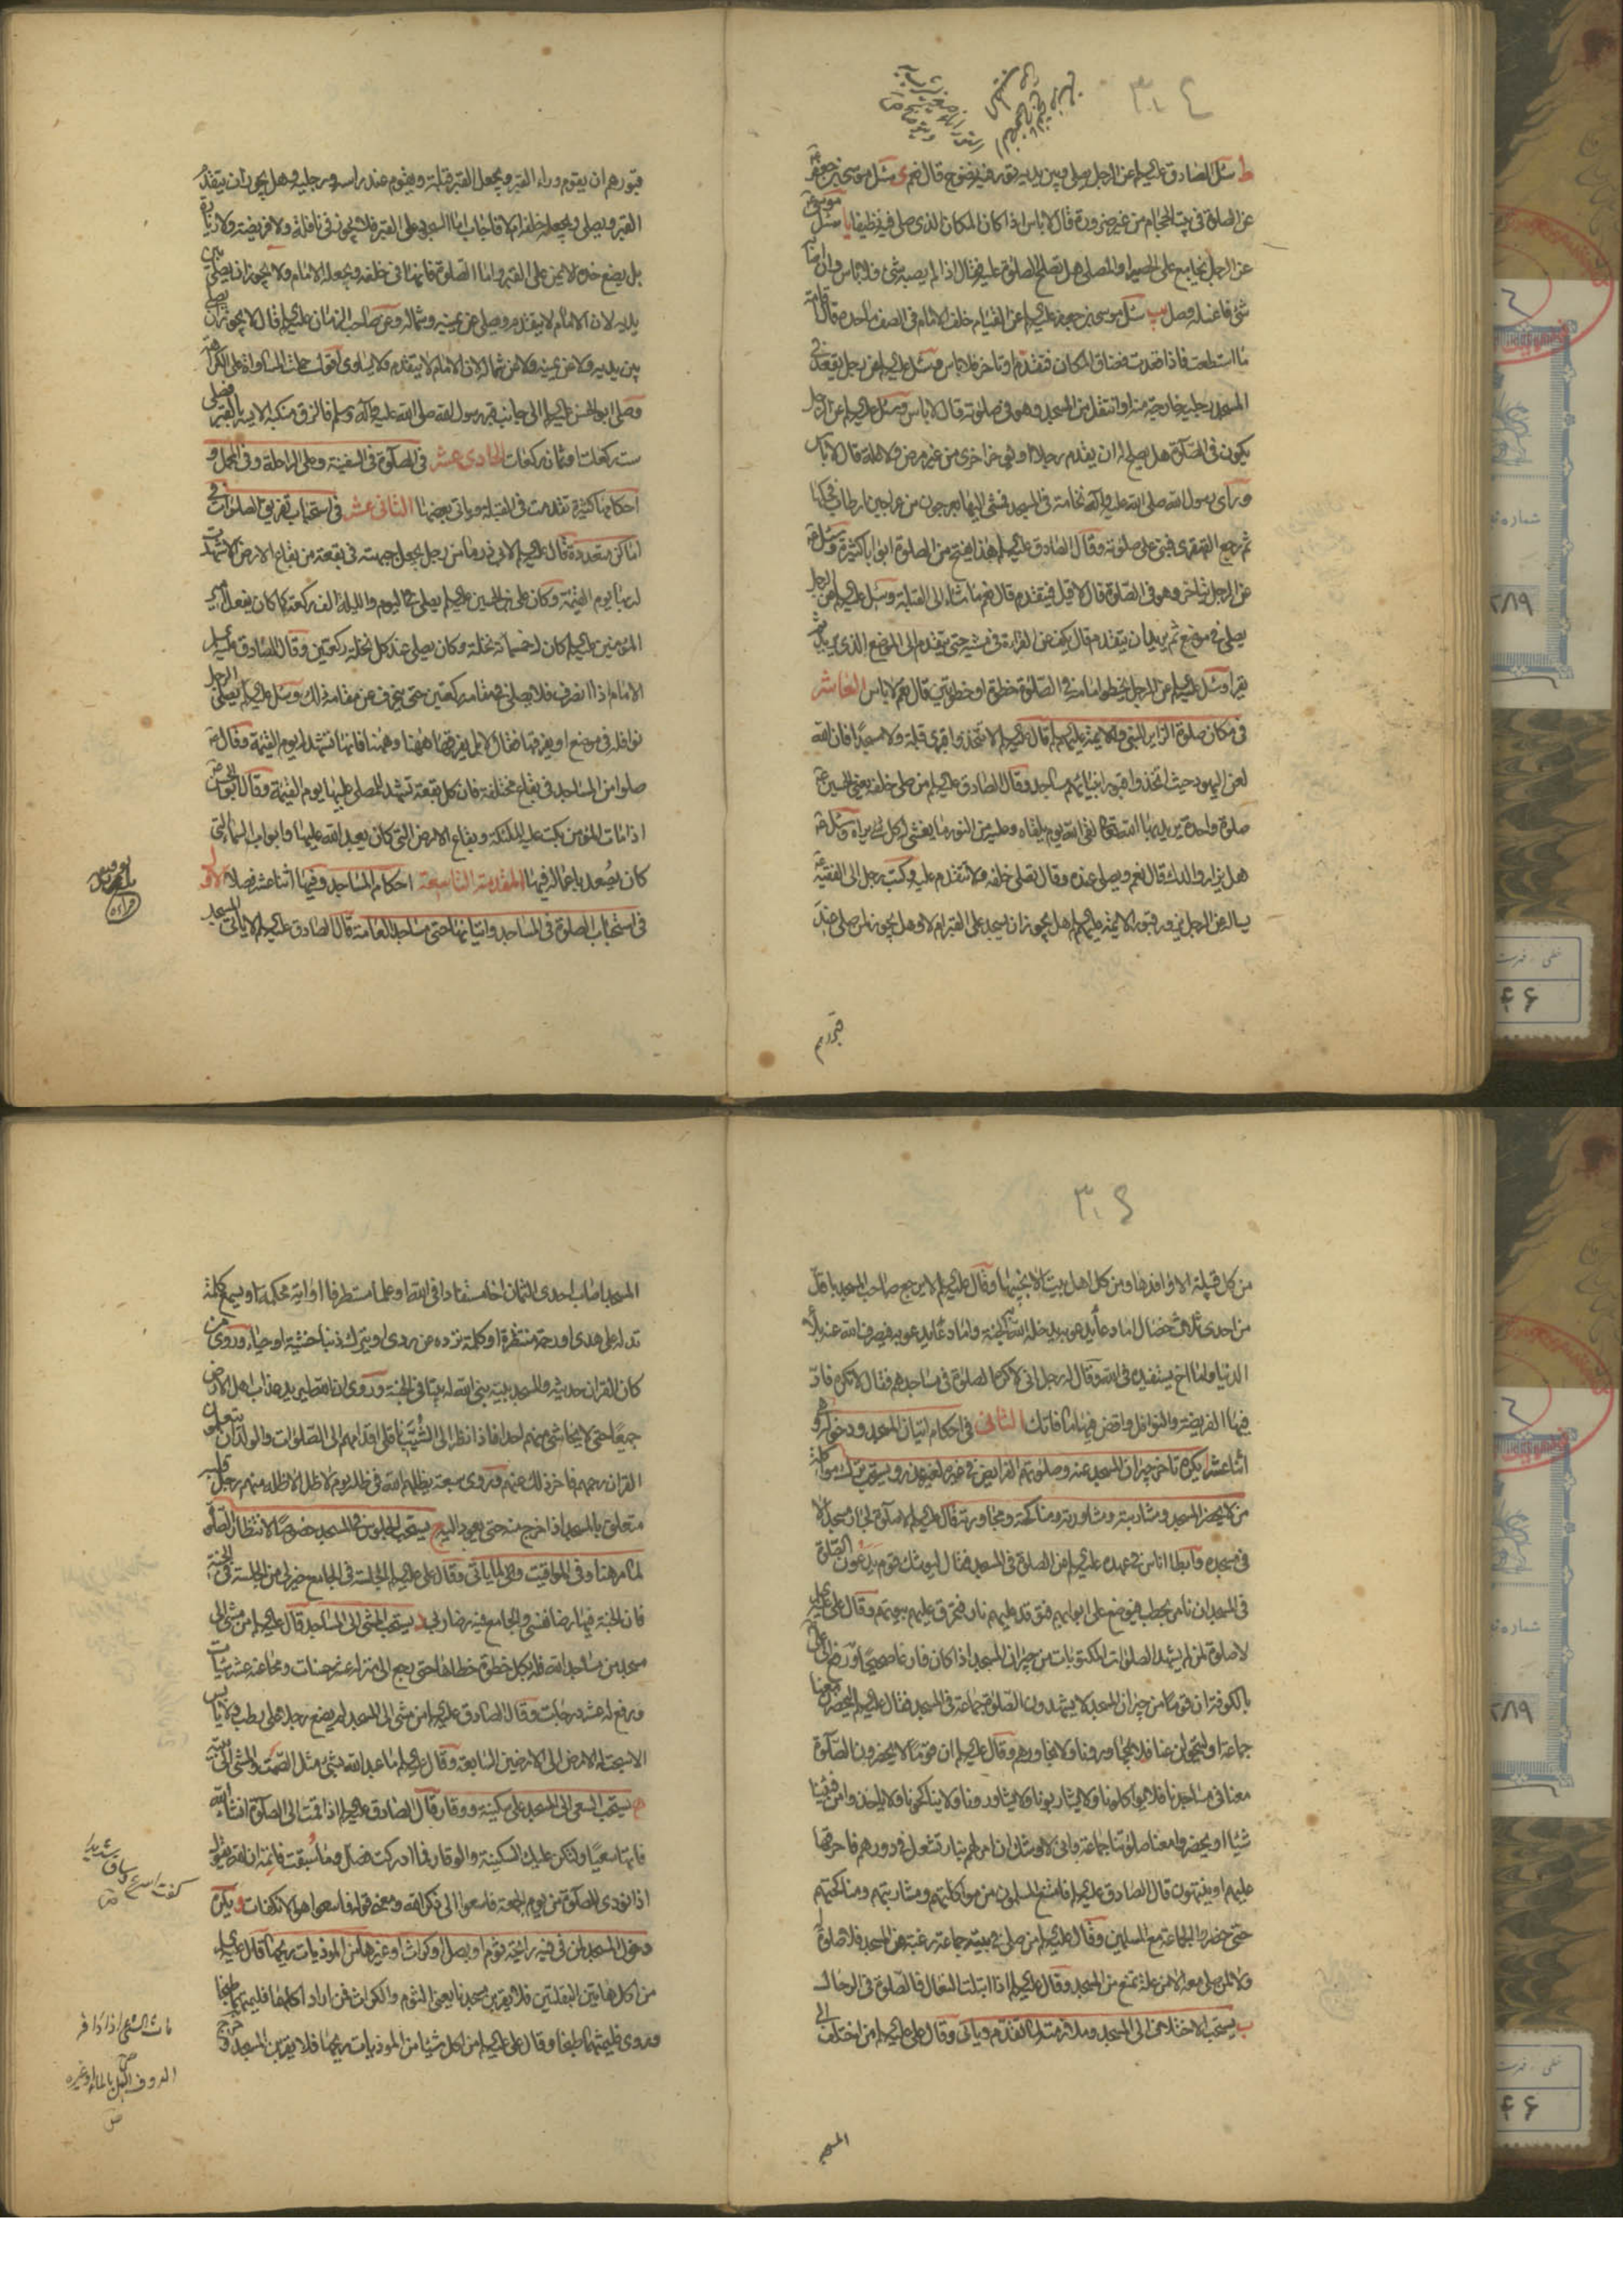 ط سئل الصادق عليه السلام عن الرجل يصلي وبين يديه تور فيه نضوح قال نعم ى سئل موسى بن جعفر ع
عن الصلوة في بيت الحجام من غير ضرورة قال لا باس اذا كان المكان الذي صلى فيه نظيفا يا سئل
عن الرجل يجامع على الحصير او المصلى هل تصلح الصلوة عليه فقال اذا لم يصبه شئ فلا باس وان اصابه
شئ فاغسله وصل يب سئل موسى بن جعفر عليه السلام عن القيام خلف الامام في الصف ما حده قال اقامة
ما استطعت فاذا قعدت فضاق المكان فتقدم او تاخر فلا باس وسئل عليه السلام عن رجل يقعد في
المسجد رجليه خارجة منه او انتقل من المسجد وهو في صلوته قال لا باس وسئل عليه السلام عن الرجل
يكون في الصلوة هل يصلح له ان يقدم رجلا او يؤخر اخرى من غير مرض ولا علة قال لا باس
وراى رسول الله صلى الله عليه وآله نخامة في المسجد فمشى اليها بعرجون من عراجين ابن طاب فحكها
ثم رجع القهقرى فبنى على صلوته وقال الصادق عليه السلام هذا يفتح من الصلوة ابوابا كثيرة وسئل ع
عن الرجل يتاخر وهو في الصلوة قال لا قيل فيتقدم قال نعم ما شاء الى القبلة وسئل عليه السلام عن الرجل
يصلي في موضع ثم يريد ان يتقدم قال يكف عن القراءة في مشيه حتى يتقدم الى الموضع الذي يريد ثم
يقرا وسئل عليه السلام عن الرجل يخطو امامه في الصلوة خطوة او خطوتين قال نعم لا باس العاشر
في مكان صلوة الزاير للنبي والائمة عليهم السلام قال عليه السلام لا تتخذوا قبري قبلة ولا مسجدا فان الله
لعن اليهود حيث اتخذوا قبور انبيائهم مساجد وقال الصادق عليه السلام من صلى خلفه يعني الحسين ع
صلوة واحدة يريد بها الله تعالى لقى الله يوم يلقاه وعليه من النور ما يغشى له كل شئ يراه وسئل ع
هل يزار والدك قال نعم ويصلى عنده وقال يصلى خلفه ولا تتقدم عليه وكتب رجل الى الفقيه ع
يساله عن الرجل يزور قبور الائمة عليهم السلام هل يجوز ان يسجد على القبر ام لا وهل يجوز لمن صلى عند
قبورهم
قبورهم ان يقوم وراء القبر ويجعل القبر قبلة ويقوم عند راسه ورجليه وهل يجوز ان يتقدم
القبر ويصلي ويجعله خلفه ام لا فاجاب اما السجود على القبر فلا يجوز في نافلة ولا فريضة ولا زيارة
بل يضع خده الايمن على القبر واما الصلوة فانها في خلفه ويجعله الامام ولا يجوز ان يصلي بين
يديه لان الامام لا يتقدم ويصلي عن يمينه وشماله وعن صاحب الزمان عليه السلام قال لا يجوز ان يصلي
بين يديه ولا عن يمينه ولا عن شماله لان الامام لا يتقدم ولا يساوى اقول حملت المساواة على الكراهة
وصلى ابو الحسن عليه السلام الى جانب قبر رسول الله صلى الله عليه وآله وسلم فالزق منكبه الايسر بالقبر فصلى
ست ركعات او ثمان ركعات الحادى عشر في الصلوة في السفينة وعلى الراحلة وفي المحمل و
احكامها كثيرة تقدمت في القبلة وياتي بعضها الثانى عشر في استحباب تفريق الصلوات في
اماكن متعددة قال عليه السلام لابي ذر ما من رجل يجعل جبهته في بقعة من بقاع الارض الا شهدت
له بها يوم القيمة وكان على بن الحسين عليه السلام يصلي في اليوم والليلة الف ركعة كما كان يفعل امير
المؤمنين عليه السلام كان له خمسمائة نخلة وكان يصلي عند كل نخلة ركعتين وقال الصادق عليه السلام
الامام اذا انصرف فلا يصلي في مقامه ركعتين حتى ينحرف عن مقامه ذلك وسئل عليه السلام يصلي الرجل
نوافله في موضع او يفرقها فقال لا بل يفرقها ههنا وههنا فانها تشهد له يوم القيمة وقال ع
صلوا من المساجد في بقاع مختلفة فان كل بقعة تشهد للمصلي عليها يوم القيمة وقال ابو الحسن ع
اذا مات المؤمن بكت عليه الملئكة وبقاع الارض التي كان يعبد الله عليها وابواب السماء التي
كان يصعد باعماله فيها المقدمة التاسعة احكام المساجد وفيها اثنا عشر فصلا الاول
في استحباب الصلوة في المساجد واتيانها حتى مساجد العامة قال الصادق عليه السلام لا ياتي المسجد
من كل قبيلة الا وافدها ومن كل اهل بيت الا نجيبها وقال عليه السلام لا يرجع صاحب المسجد باقل
من احدى ثلاث خصال اما دعاء يدعو به يدخله الله الجنة واما دعاء يدعو به فيصرف الله عنه بلاء
الدنيا واما اخ يستفيده في الله وقال له رجل اني لاكره الصلوة في مساجدهم فقال لا تكره فادّ
فيها الفريضة والنوافل واقض فيها ما فاتك الثانى في احكام اتيان المسجد ودخوله وهي
اثنا عشر ا يكره تاخر جيران المسجد عنه وصلوتهم الفرايض في غيره لغير عذر ويستحب ترك مواكلة
من لا يحضر المسجد ومشاربته ومشاورته ومناكحته ومجاورته قال عليه السلام لا صلوة لجار مسجد الا
في مسجده وابطا اناس في عهده عليه السلام عن الصلوة في المسجد فقال ليوشك قوم يدعون الصلوة
في المسجد ان نامر بحطب فيوضع على ابوابهم فتوقد عليهم نار فتحرق عليهم بيوتهم وقال على عليه السلام
لا صلوة لمن لم يشهد الصلوات المكتوبات من جيران المسجد اذا كان فارغا صحيحا ورفع الى علي
بالكوفة ان قوما من جيران المسجد لا يشهدون الصلوة جماعة في المسجد فقال عليه السلام ليحضرن معنا
جماعة او ليتحولن عنا فلا يجاورونا ولا نجاورهم وقال عليه السلام ان قوما لا يحضرون الصلوة
معنا في مساجدنا فلا يواكلونا ولا يشاربونا ولا يشاورونا ولا يناكحونا ولا ياخذوا من فيئنا
شيئا او يحضروا معنا صلوتنا جماعة واني لاوشك ان آمر لهم بنار تشعل في دورهم فاحرقها
عليهم او ينتهون قال الصادق عليه السلام فامتنع المسلمون من مواكلتهم ومشاربتهم ومناكحتهم
حتى حضروا الجماعة مع المسلمين وقال عليه السلام من صلى في بيته جماعة رغبة عن المسجد فلا صلوة له
ولا لمن صلى معه الا من علة تمنع من المسجد وقال عليه السلام اذا ابتلت النعال فالصلوة في الرحال
ب يستحب الاختلاف الى المسجد وملازمته لما تقدم وياتي وقال على عليه السلام من اختلف الى
المسجد
المسجد اصاب احدى الثمان اخا مستفادا في الله او علما مستطرفا او آية محكمة او يسمع كلمة
تدله على هدى او رحمة منتظرة او كلمة ترده عن ردى او يترك ذنبا خشية او حياء وروى من
كان القران حديثه والمسجد بيته بنى الله له بيتا في الجنة وروى ان الله ليريد عذاب اهل الارض
جميعا حتى لا يحاشى منهم احدا فاذا نظر الى الشيب ناقلي اقدامهم الى الصلوات والولدان يتعلمون
القران رحمهم فاخر ذلك عنهم وروى سبعة يظلهم الله في ظله يوم لا ظل الا ظله منهم رجل قلبه
متعلق بالمسجد اذا خرج منه حتى يعود اليه ج يستحب الجلوس في المسجد خصوصا لانتظار الصلوة
لما مر هنا وفي المواقيت ولما ياتي وقال على عليه السلام الجلسة في الجامع خير لى من الجلسة في الجنة
فان الجنة فيها رضا نفسي والجامع فيه رضا ربي د يستحب المشى الى المساجد قال عليه السلام من مشى الى
مسجد من مساجد الله فله بكل خطوة خطاها حتى يرجع الى منزله عشر حسنات ومحا عنه عشر سيئات
ورفع له عشر درجات وقال الصادق عليه السلام من مشى الى المسجد لم يضع رجله على رطب ولا يابس
الا سبحت له الارض الى الارضين السابعة وقال عليه السلام ما عبد الله بشئ مثل الصمت والمشى الى بيته
ه يستحب السعى الى المسجد على سكينة ووقار قال الصادق عليه السلام اذا قمت الى الصلوة انشاء الله
فاتها سعيا ولتكن عليك السكينة والوقار فما ادركت فصل وما سبقت فاتمه ان الله يقول
اذا نودى للصلوة من يوم الجمعة فاسعوا الى ذكر الله ومعنى قوله فاسعوا هو الانكفات و يكره
دخول المسجد لمن في فيه رائحة ثوم او بصل او كراث او غيرها من الموذيات ريحها قال عليه السلام
من اكل هاتين البقلتين فلا يقربن مسجدنا يعنى الثوم والكراث فمن اراد اكلهما فليمتهما طبخا
وروى فليمثهما طبخا وقال على عليه السلام من اكل شيئا من الموذيات ريحها فلا يقربن المسجد و